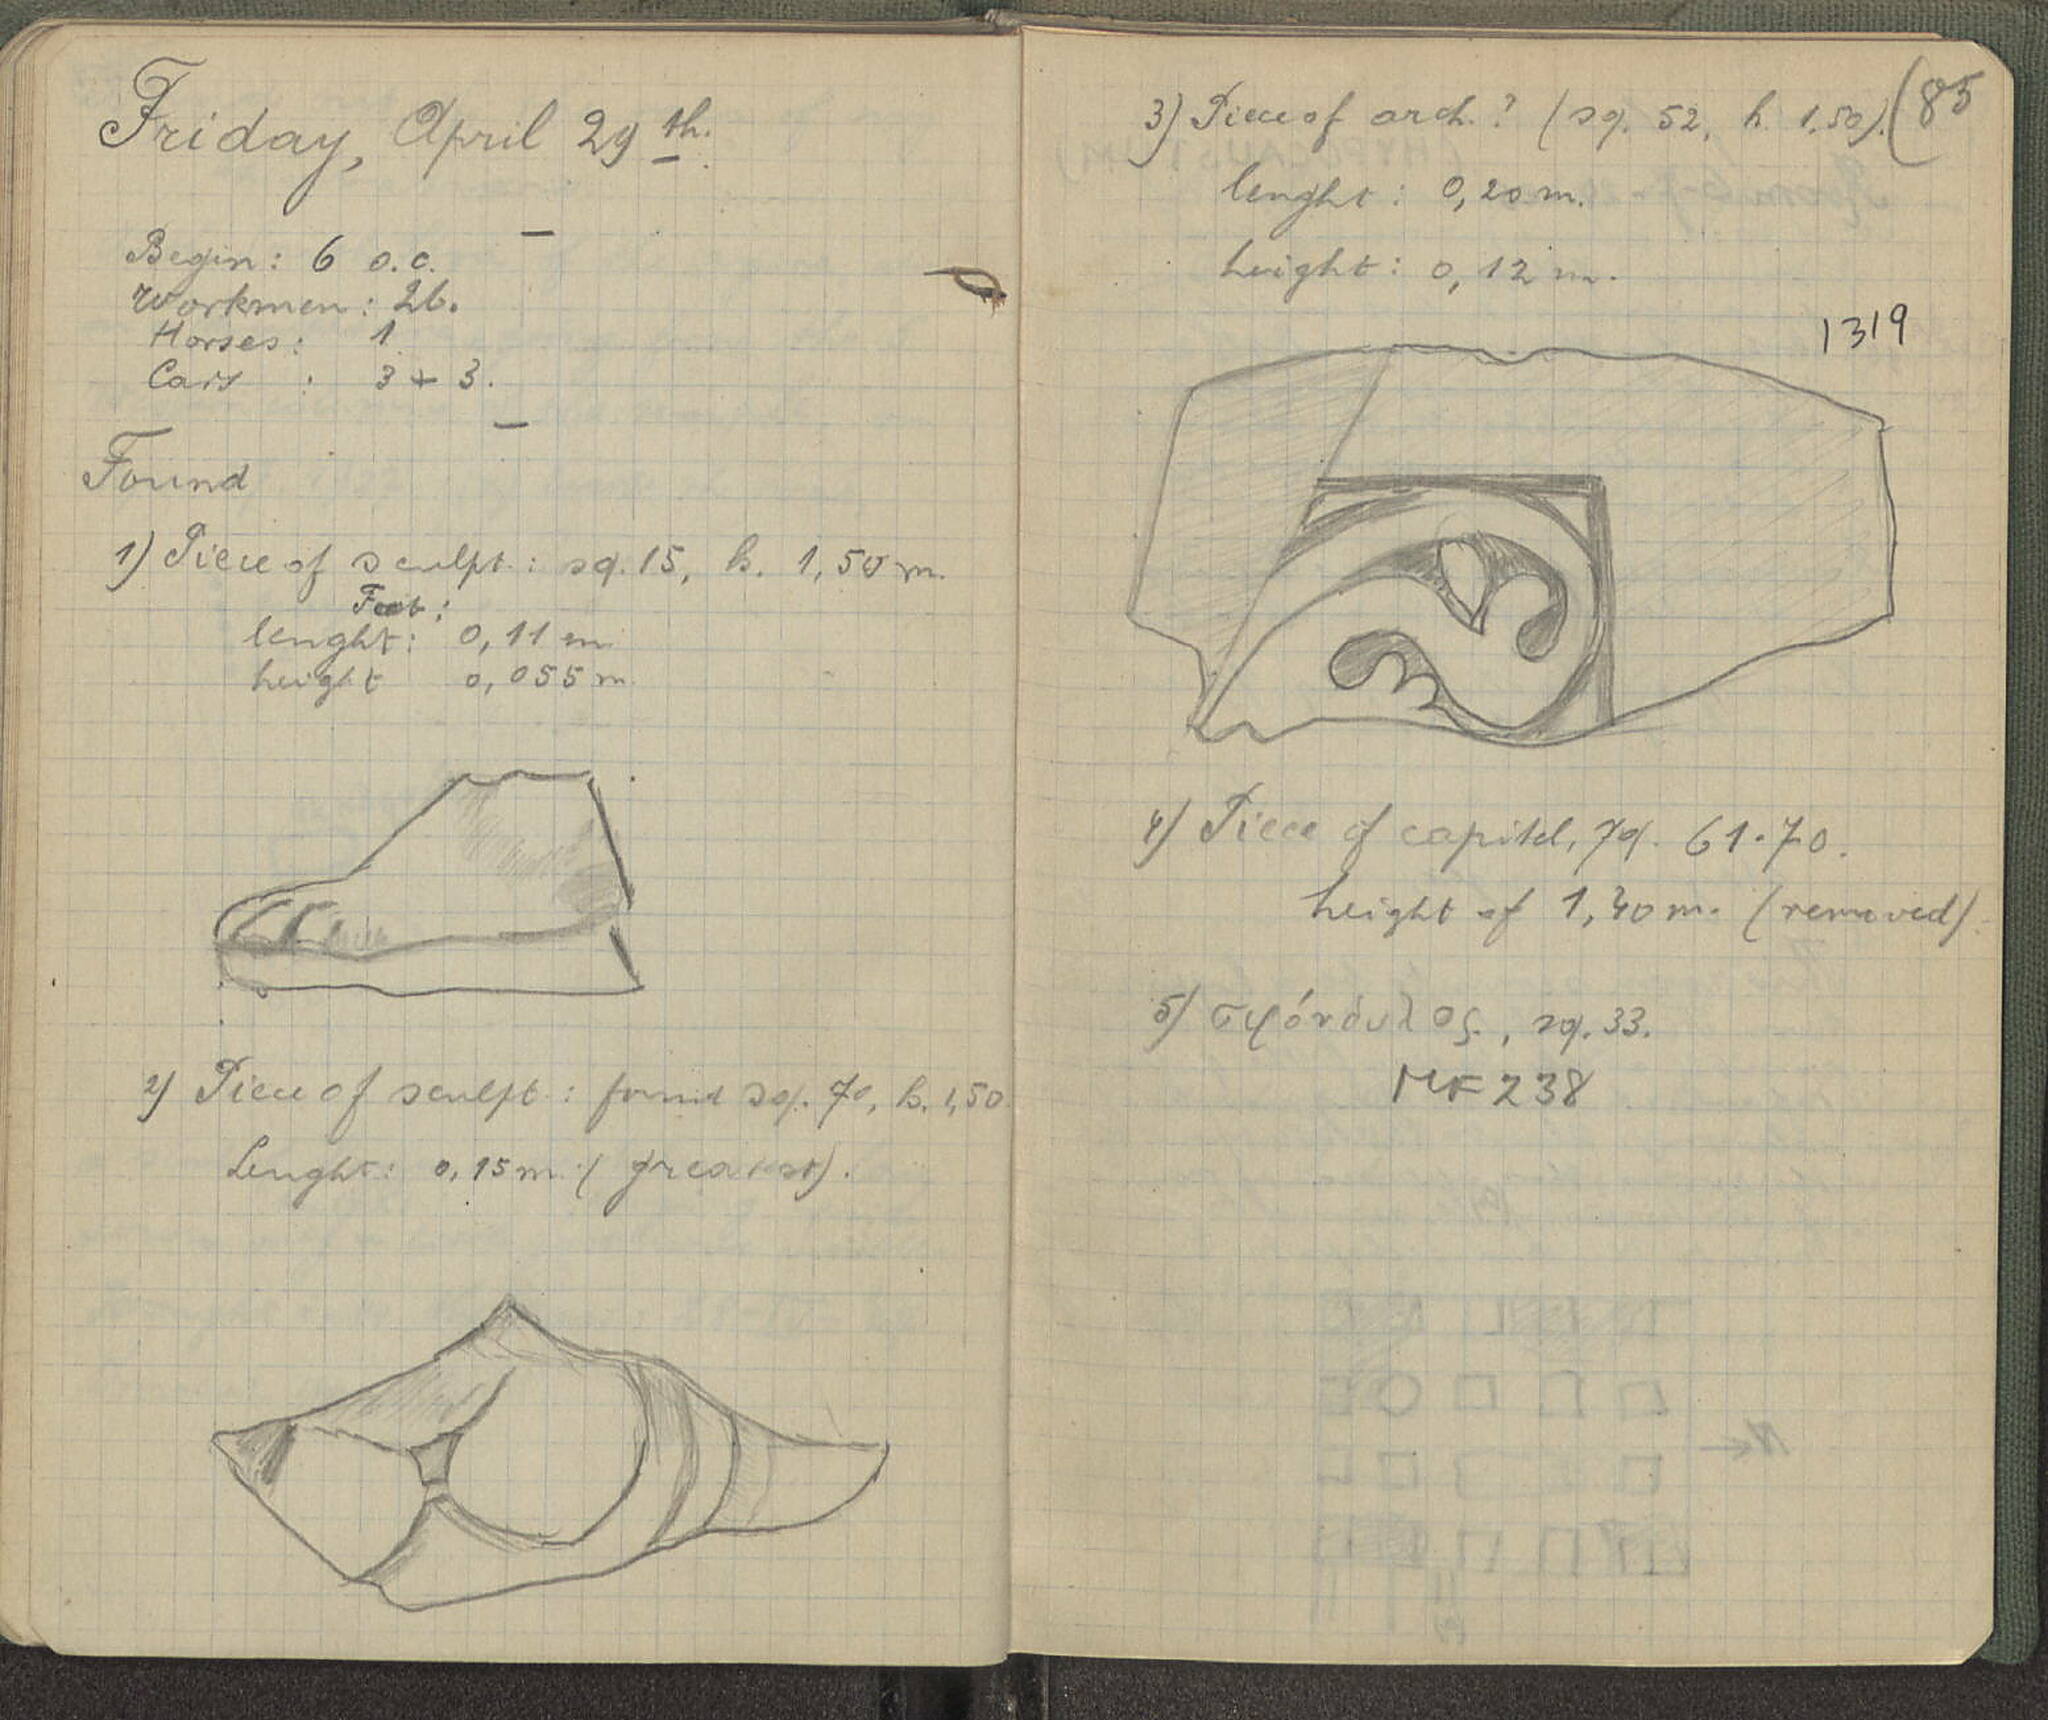 Friday, April 29th.
Begin: 6 o.c.
Workmen: 26.
Horses: 1
Cars : 3 + 3.
Found
1) Piece of sculpt.: sq. 15, h. 1,50 m.
Foot:
lenght: 0,11 m
height 0,055 m
2) Piece of sculpt.: found sq. 70, h. 1,50
Lenght: 0,15 m. (greatest).
(85
3) Piece of arch.? (sq. 52, h. 1,50).
lenght: 0,20 m.
height: 0,12 m.
1319
4) Piece of capitel, sq. 61-70.
height of 1,40 m. (removed).
5) σφόνδυλος, sq. 33.
MF 238